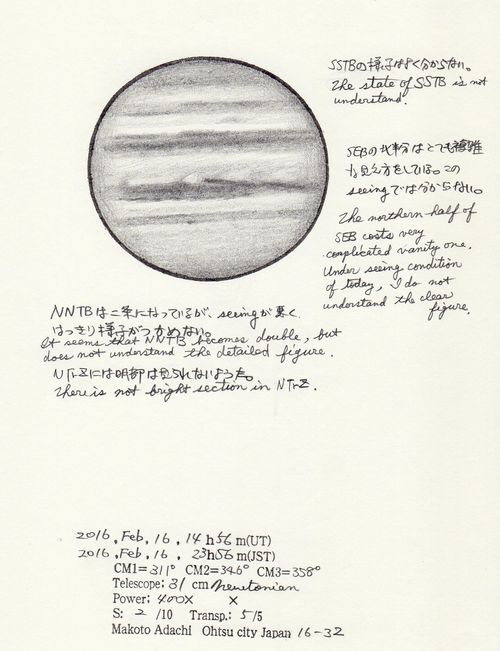 SSTBの様子はよく分からない。
The state of SSTB is not
understand.
SEBの北半分はとても複雑
な見え方をしている。この
seeingでは分からない。
The northern half of
SEB costs very
complicated vanity one.
Under seeing condition
of today, I do not
understand the clear
figure.
NNTBは二条になっているが、seeingが悪く
はっきり様子がつかめない。
It seems that NNTB becomes double, but
does not understand the detailed figure.
NTrZには明部は見られないようだ。
There is not bright section in NTrZ.
2016, Feb, 16, 14h56m(UT)
2016, Feb, 16, 23h56m(JST)
CM1=311° CM2=346° CM3=358°
Telescope: 31 cm Newtonian
Power: 400× ×
S: 2 /10 Transp.: 5/5
Makoto Adachi Ohtsu city Japan 16-32